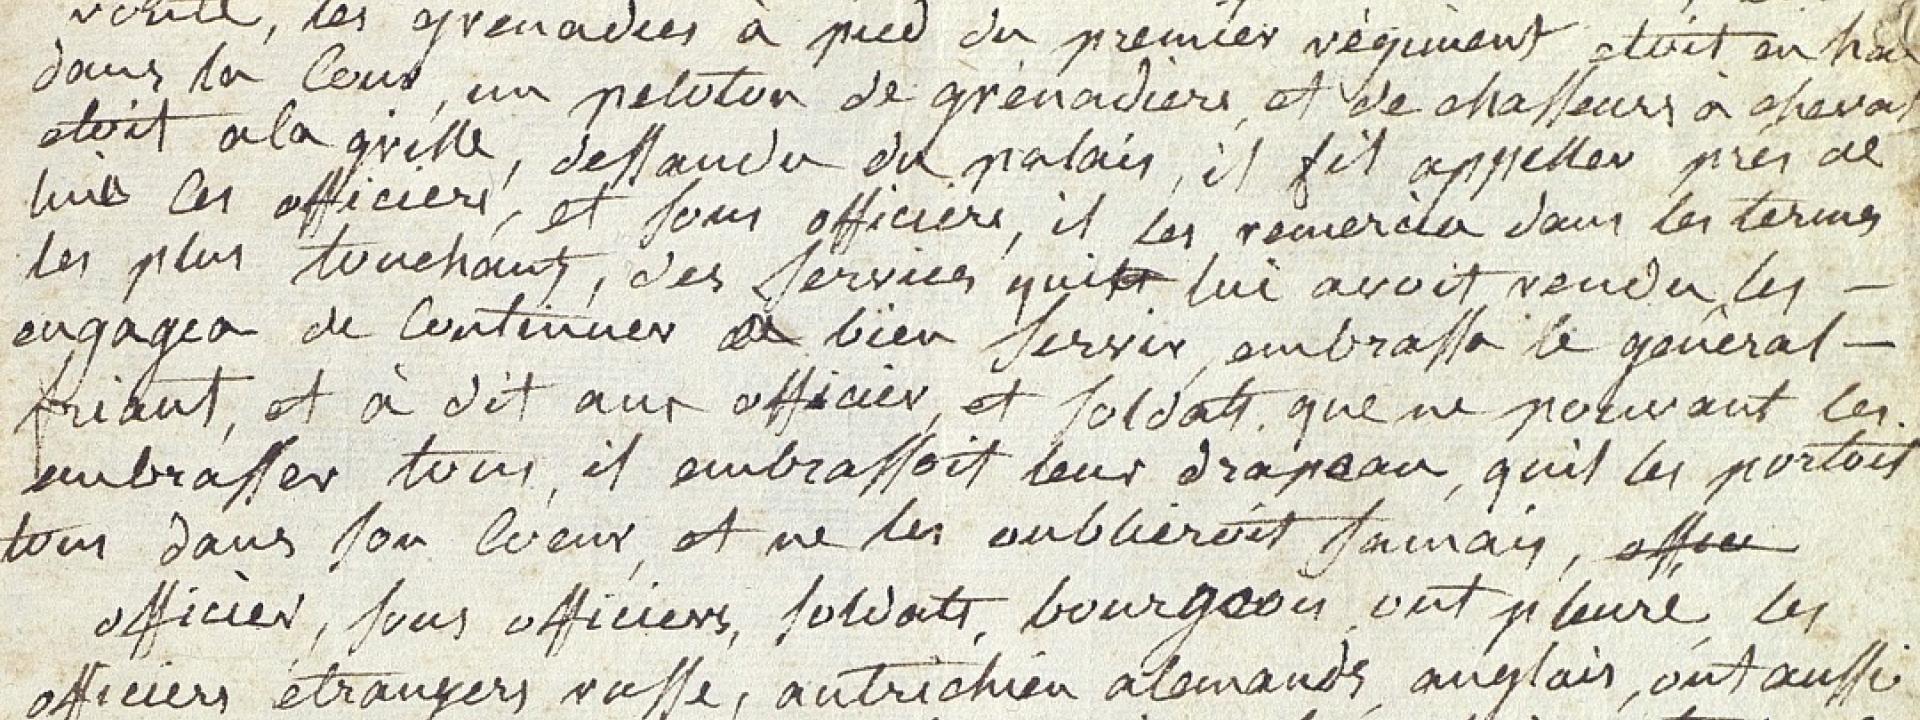 les grenadies à pied du premier régiment etoit en
dans la Cour, un peloton de grenadiers, et de chasseurs à cheval
etoit a la grille, dessandu du palais, il fit appeller près de
lui les officiers, et sous officiers, il les remercia dans les termes
les plus touchants, des services quil lui avoit rendu, les –
engagea de Continuer de bien servir, embrassa le géneral –
friant, et à dit aux officier, et soldats, que ne pouvant les
embrasser tous, il embrassoit leur drapeau, quil les portoit
tous dans son Coeur, et ne les oublieroit jamais,
officier, sous officiers, soldats, bourgeois, ont pleuré, les
officiers étrangers russe, autrichien alemands, anglais, ont aussi